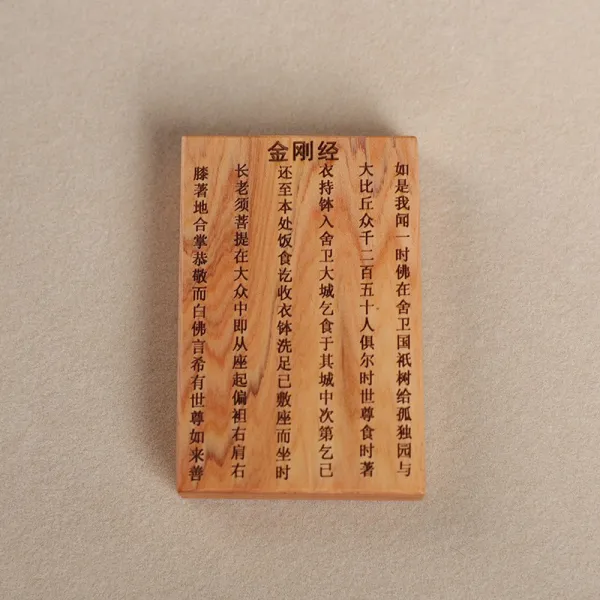 金刚经
如是我闻一时佛在舍卫国祇树给孤独园与
大比丘众千二百五十人俱尔时世尊食时著
衣持钵入舍卫大城乞食于其城中次第乞已
还至本处饭食讫收衣钵洗足已敷座而坐时
长老须菩提在大众中即从座起偏袒右肩右
膝著地合掌恭敬而白佛言希有世尊如来善